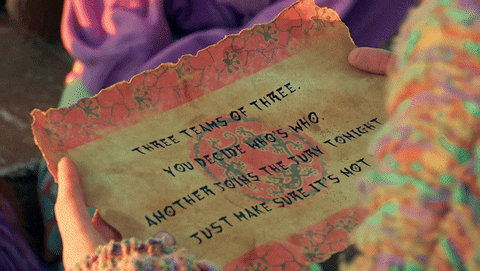 THREE TEAMS OF THREE,
YOU DECIDE WHO'S WHO.
ANOTHER JOINS THE JURY TONIGHT
JUST MAKE SURE IT'S NOT